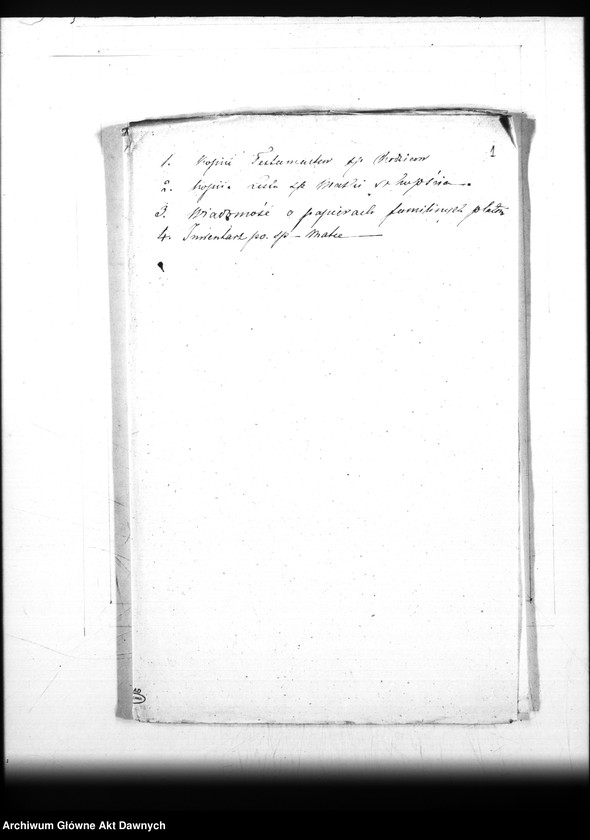 1
1. Kopiie Testamentów sp. Rodziców
2. Kopiia Listu sp. Matki
3. Wiadomość o papierach familinych
4. Inwentarz po. sp - Matce
Archiwum Główne Akt Dawnych